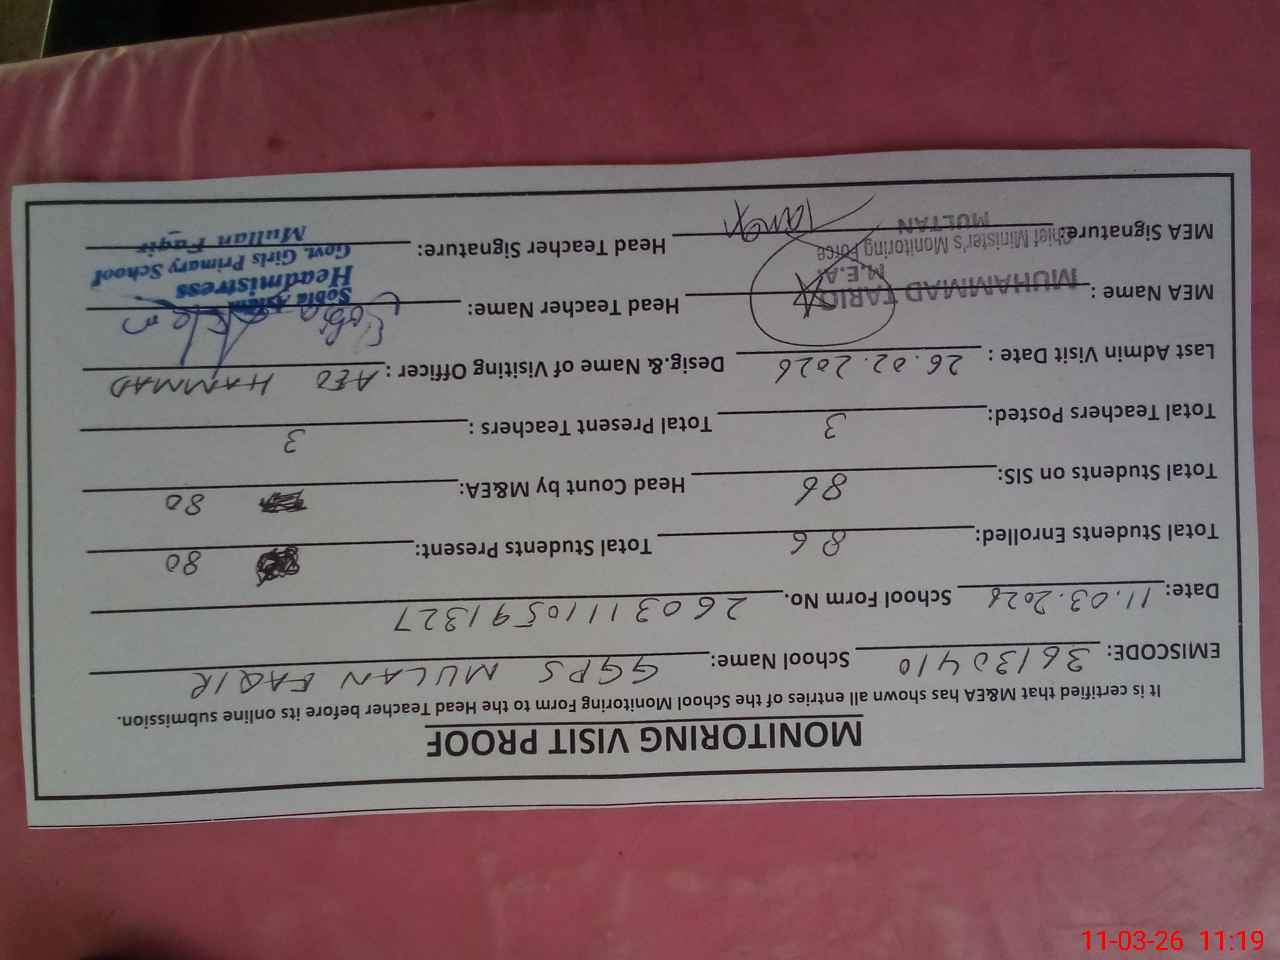 MONITORING VISIT PROOF
It is certified that M&EA has shown all entries of the School Monitoring Form to the Head Teacher before its online submission.
EMISCODE: 36130410 School Name: GGPS MULAN FAQIR
Date: 11.03.2026 School Form No. 26031110591327
Total Students Enrolled: 86 Total Students Present: 80
Total Students on SIS: 86 Head Count by M&EA: 80
Total Teachers Posted: 3 Total Present Teachers : 3
Last Admin Visit Date : 26.02.2026 Desig.& Name of Visiting Officer : AEO HAMMAD
MEA Name : MUHAMMAD TARIQ Head Teacher Name: Sobia Aslam
M.E.A. Headmistress
Chief Minister's Monitoring Force Govt. Girls Primary School
MEA Signature: MULTAN Head Teacher Signature: Mullan Faqir
11-03-26 11:19